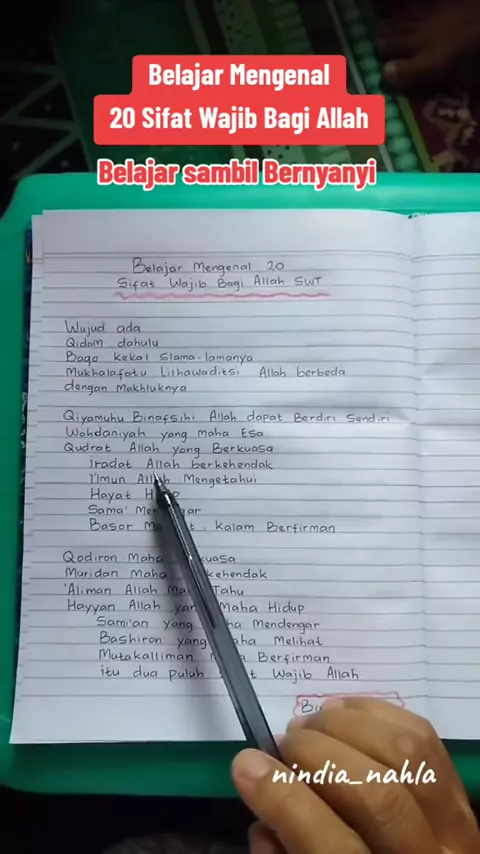 Belajar Mengenal
20 Sifat Wajib Bagi Allah
Belajar sambil Bernyanyi
Belajar Mengenal 20
Sifat Wajib Bagi Allah SWT
Wujud ada
Qidam dahulu
Baqo kekal Slama-lamanya
Mukhalafatu Lilhawaditsi Allah berbeda
dengan Makhluknya
Qiyamuhu Binafsihi Allah dapat Berdiri Sendiri
Wahdaniyah yang maha Esa
Qudrat Allah yang Berkuasa
Iradat Allah berkehendak
I'lmun Allah Mengetahui
Hayat
Sama'
Basor kalam Berfirman
Qodiron Maha
Muridan Maha
'Aliman Allah Tahu
Hayyan Allah Maha Hidup
Sami'an yang Mendengar
Bashiron yang Melihat
Mutakalliman Berfirman
itu dua puluh Wajib Allah
nindia_nahla